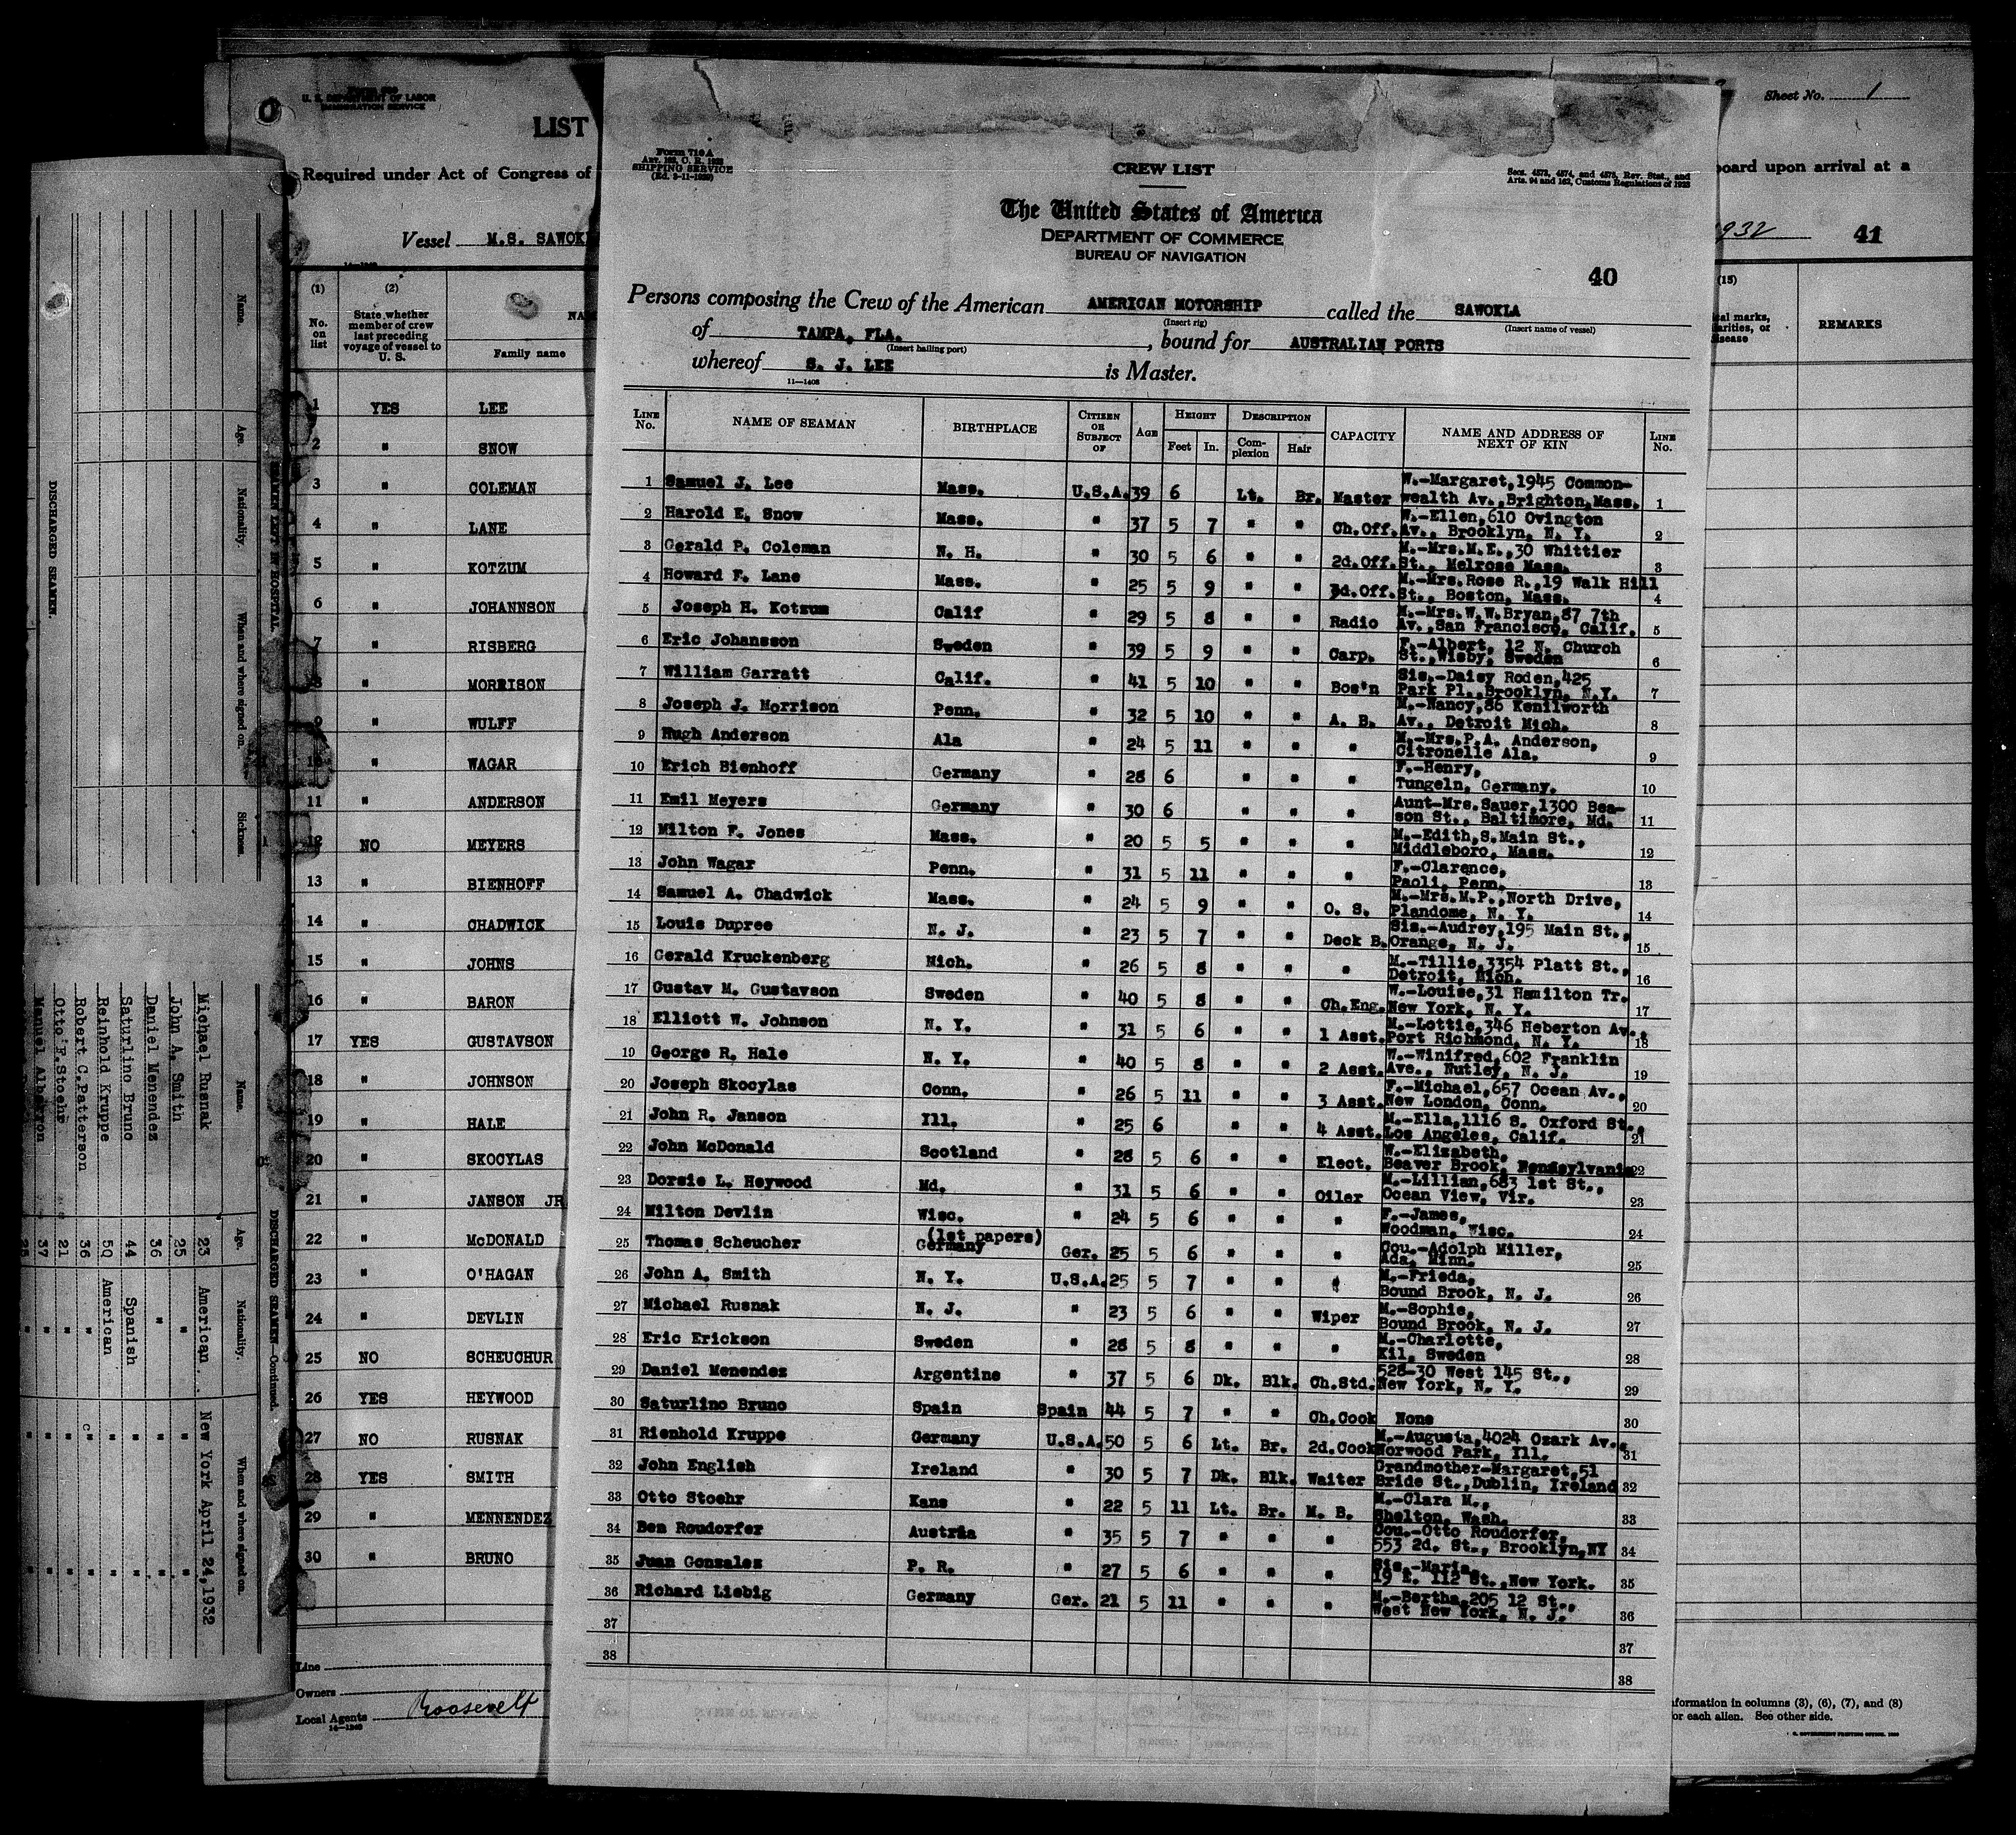 Form 710 A
Art. 162, C. R. 1923
SHIPPING SERVICE
CREW LIST
Secs. 4573, 4574, and 4575, Rev. Stat., and
Arts. 94 and 162, Customs Regulations of 1923
The United States of America
DEPARTMENT OF COMMERCE
BUREAU OF NAVIGATION
40
Persons composing the Crew of the American AMERICAN MOTORSHIP called the SAWOKLA
(Insert rig) (Insert name of vessel)
of TAMPA, FLA. , bound for AUSTRALIAN PORTS
(Insert hailing port)
whereof S. J. LEE is Master.
11—1408
LINE No. NAME OF SEAMAN BIRTHPLACE CITIZEN OR SUBJECT OF AGE HEIGHT Feet In. DESCRIPTION Complexion Hair CAPACITY NAME AND ADDRESS OF NEXT OF KIN LINE No.
1 Samuel J. Lee Mass. U.S.A. 39 6 Lt. Br. Master W.-Margaret,1945 Common-wealth Av.,Brighton,Mass. 1
2 Harold E. Snow Mass. " 37 5 7 " " Ch.Off. W.-Ellen,610 Ovington Av., Brooklyn, N. Y. 2
3 Gerald P. Coleman N. H. " 30 5 6 " " 2d.Off. M.-Mrs.M.E.,30 Whittier St., Melrose Mass. 3
4 Howard F. Lane Mass. " 25 5 9 " " 3d.Off. M.-Mrs.Rose R.,19 Walk Hill St., Boston, Mass. 4
5 Joseph H. Kotzum Calif " 29 5 8 " " Radio M.-Mrs.W.W.Bryan,87 7th Av.,San Francisco, Calif. 5
6 Eric Johansson Sweden " 39 5 9 " " Carp. F.-Albert, 12 N. Church St.,Wisby, Sweden 6
7 William Garratt Calif. " 41 5 10 " " Bos'n Sis.-Daisy Roden,425 Park Pl.,Brooklyn, N.Y. 7
8 Joseph J. Morrison Penn. " 32 5 10 " " A. B. M.-Nancy,86 Kenilworth Av., Detroit Mich. 8
9 Hugh Anderson Ala " 24 5 11 " " " M.-Mrs.P.A. Anderson, Citronelle Ala. 9
10 Erich Bienhoff Germany " 28 6 " " " F.-Henry, Tungeln, Germany. 10
11 Emil Meyers Germany " 30 6 " " " Aunt-Mrs.Sauer,1300 Bea-son St., Baltimore, Md. 11
12 Milton F. Jones Mass. " 20 5 5 " " " M.-Edith,S.Main St., Middleboro, Mass. 12
13 John Wagar Penn. " 31 5 11 " " " F.-Clarence, Paoli, Penn. 13
14 Samuel A. Chadwick Mass. " 24 5 9 " " O. S. M.-Mrs.M.P.,North Drive, Plandome, N. Y. 14
15 Louis Dupree N. J. " 23 5 7 " " Deck B. Sis.-Audrey,195 Main St., Orange, N. J. 15
16 Gerald Kruckenberg Mich. " 26 5 8 " " " M.-Tillie,3354 Platt St., Detroit, Mich. 16
17 Gustav M. Gustavson Sweden " 40 5 8 " " Ch.Eng. W.-Louise,31 Hamilton Tr. New York, N. Y. 17
18 Elliott W. Johnson N. Y. " 31 5 6 " " 1 Asst. M.-Lottie,346 Heberton Av., Port Richmond, N. Y. 18
19 George R. Hale N. Y. " 40 5 8 " " 2 Asst. W.-Winifred,602 Franklin Ave., Nutley, N. J. 19
20 Joseph Skocylas Conn. " 26 5 11 " " 3 Asst. F.-Michael,657 Ocean Av., New London, Conn. 20
21 John R. Janson Ill. " 25 6 " " 4 Asst. M.-Ella,1116 S. Oxford St., Los Angeles, Calif. 21
22 John McDonald Scotland " 28 5 6 " " Elect. W.-Elizabeth, Beaver Brook, Pennsylvania 22
23 Dorsie L. Heywood Md. " 31 5 6 " " Oiler M.-Lillian,683 1st St., Ocean View, Vir. 23
24 Milton Devlin Wisc. " 24 5 6 " " " F.-James, Woodman, Wisc. 24
25 Thomas Scheucher (1st papers) Germany Ger. 25 5 6 " " " Cou.-Adolph Miller, Ada, Minn. 25
26 John A. Smith N. Y. U.S.A. 25 5 7 " " " M.-Frieda, Bound Brook, N. J. 26
27 Michael Rusnak N. J. " 23 5 6 " " Wiper M.-Sophie, Bound Brook, N. J. 27
28 Eric Erickson Sweden " 28 5 8 " " " M.-Charlotte, Kil, Sweden 28
29 Daniel Menendez Argentine " 37 5 6 Dk. Blk. Ch.Std. 528-30 West 145 St., New York, N. Y. 29
30 Saturlino Bruno Spain Spain 44 5 7 " " Ch.Cook None 30
31 Rienhold Kruppe Germany U.S.A. 50 5 6 Lt. Br. 2d.Cook M.-Augusta,4024 Ozark Av., Norwood Park, Ill. 31
32 John English Ireland " 30 5 7 Dk. Blk. Waiter Grandmother-Margaret,51 Bride St.,Dublin, Ireland 32
33 Otto Stoehr Kans " 22 5 11 Lt. Br. M. B. M.-Clara M., Shelton, Wash. 33
34 Ben Roudorfer Austria " 35 5 7 " " " Cou.-Otto Roudorfer, 553 2d. St., Brooklyn,NY 34
35 Juan Gonzales P. R. " 27 5 6 " " " Sis.-Maria, 19 E. 112 St.,New York. 35
36 Richard Liebig Germany Ger. 21 5 11 " " " M.-Bertha,205 12 St., West New York, N. J. 36
37 37
38 38
U. S. DEPARTMENT OF LABOR
IMMIGRATION SERVICE
LIST
Required under Act of Congress of
Vessel M.S. SAWOK
(1) No. on list (2) State whether member of crew last preceding voyage of vessel to U. S. Family name
1 YES LEE
2 " SNOW
3 " COLEMAN
4 " LANE
5 " KOTZUM
6 " JOHANNSON
7 " RISBERG
8 " MORRISON
9 " WULFF
10 " WAGAR
11 " ANDERSON
12 NO MEYERS
13 " BIENHOFF
14 " CHADWICK
15 " JOHNS
16 " BARON
17 YES GUSTAVSON
18 " JOHNSON
19 " HALE
20 " SKOCYLAS
21 " JANSON JR
22 " McDONALD
23 " O'HAGAN
24 " DEVLIN
25 NO SCHEUCHUR
26 YES HEYWOOD
27 NO RUSNAK
28 YES SMITH
29 " MENNENDEZ
30 " BRUNO
Line
Owners
Local Agents Roosevelt
Sheet No. 1
board upon arrival at a
1932 41
(15) REMARKS
formation in columns (3), (6), (7), and (8)
or each alien. See other side.
SEAMEN LEFT IN HOSPITAL
Name. Age. Nationality. When and where signed on. Sickness.
DISCHARGED SEAMEN.
DISCHARGED SEAMEN—Continued.
Name. Age. Nationality. When and where signed on.
Michael Rusnak 23 American New York April 24,1932
John A. Smith 25 " " "
Daniel Menendez 36 " " "
Saturlino Bruno 44 Spanish " "
Reinhold Kruppe 50 American " "
Robert C.Patterson 36 " " "
Otto F.Stoehr 21 " " "
Manuel 37 " " "